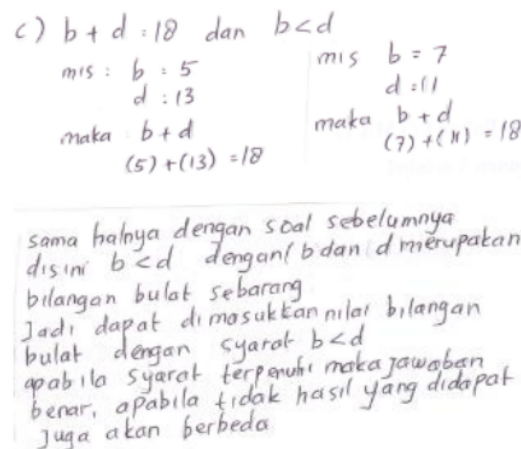 c) b + d = 18 dan b < d
mis : b = 5
d : 13
maka b + d
(5) + (13) = 18
mis b = 7
d = 11
maka b + d
(7) + (11) = 18
sama halnya dengan soal sebelumnya
disini b < d dengan b dan d merupakan
bilangan bulat sebarang
Jadi dapat dimasukkan nilai bilangan
bulat dengan syarat b < d
apabila syarat terpenuhi maka jawaban
benar, apabila tidak hasil yang didapat
juga akan berbeda